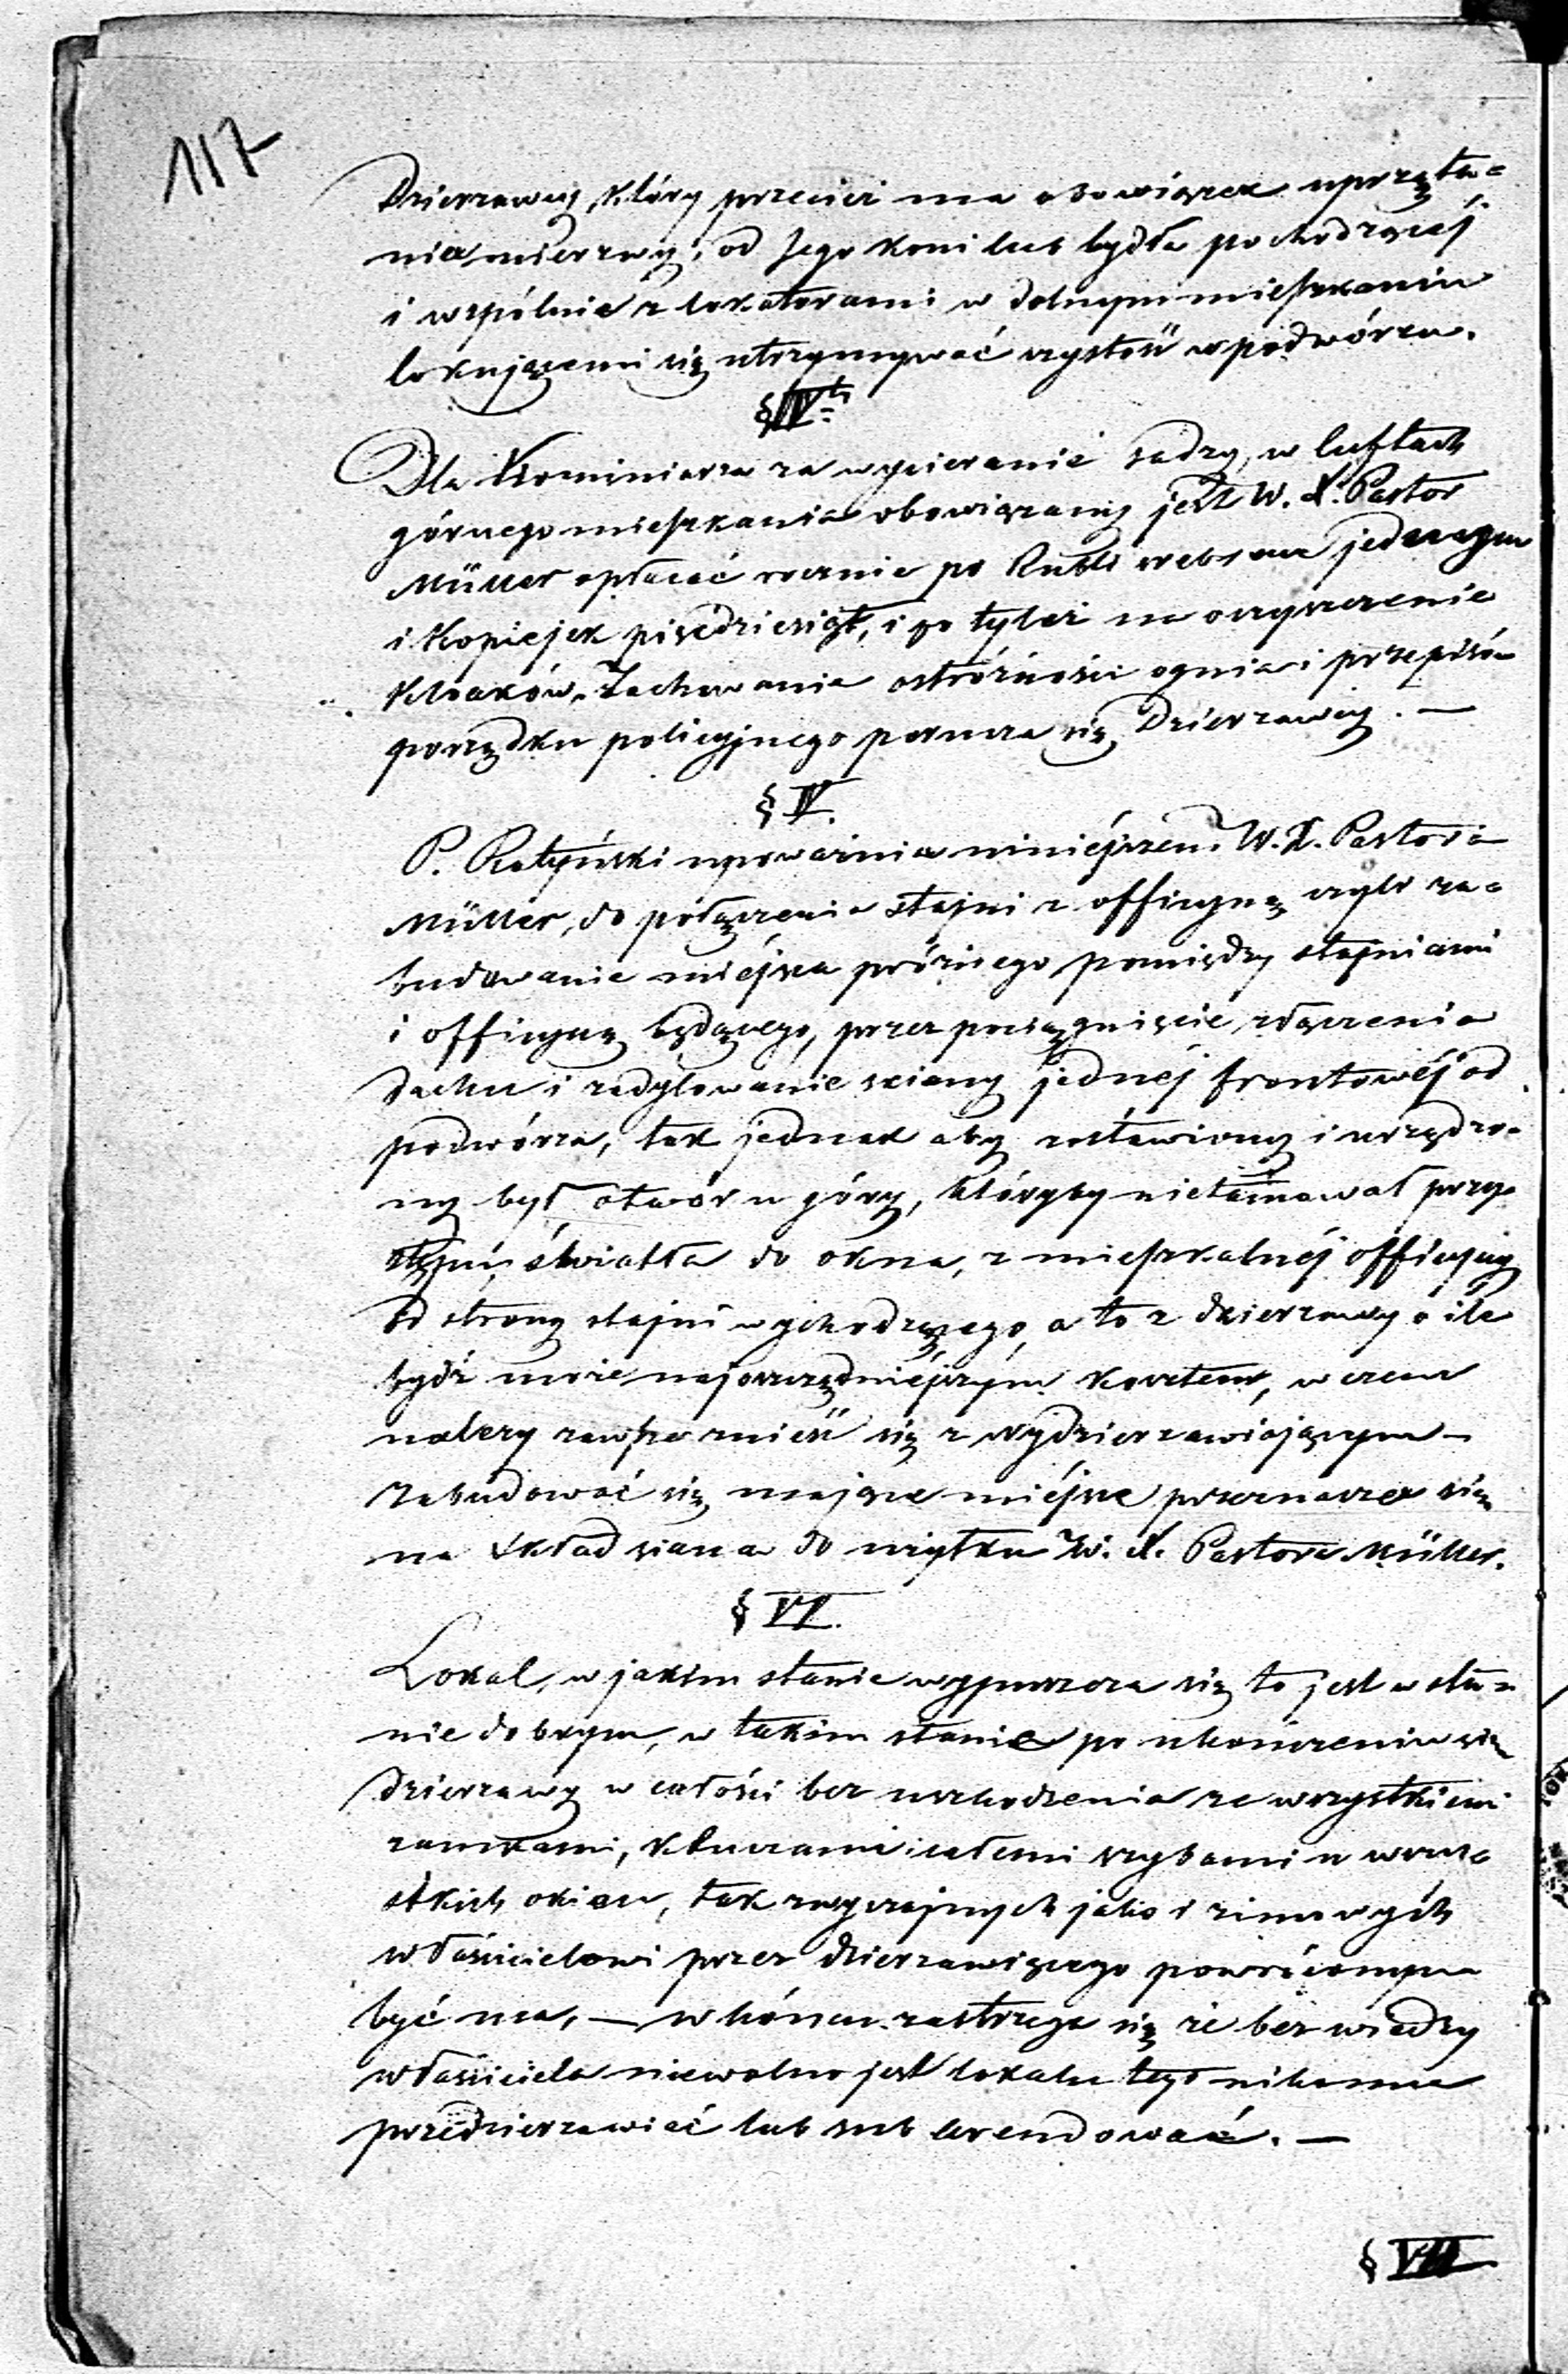 117
Dzierzawcy, który przecież ma obowiązek uprząta=
nia mierzwy, od Jego koni lub bydła pochodzącej
i wspólnie z lokatorami w dolnym mieszkaniu
lokującemi się utrzymywać czystość w podwórzu.
§ IV
Dla Kominiarza za wycieranie sadzy, w luftach
górnego mieszkania obowiązany jest W. X. Pastor
Müller opłacać rocznie po Rubli srebrem jednegym
i Kopiejek pięćdziesiąt, i po tyleż na oczyszczenie
Kloaków. Zachowanie ostróżności ognia i przepisów
porządku policyjnego porucza się Dzierzawcy. —
§ V.
P. Ratyński upoważnia niniéjszem W. X. Pastora
Müller, do połączenia stajni z officyną czyli za=
budowanie miéjsca próżnego pomiędzy stajniami
i officyną będącego, przez pociągnięcie złączenia
dachu i zadylowanie sciany jednéj frontowéj od
podwórza, tak jednak aby zostawiony i urządzo=
ny był otwór u góry, któryby nietamował przy=
stępu światła do okna, z mieszkalnéj officyny
od strony stajni wychodzącego, a to z dzierzawy o ile
bydź może najoszczędniéjszym kosztem, w czem
należy zawsze znieść się z wydzierzawiającym —
Zabudować się mające miéjsce przeznacza się
na skład siana do użytku W. X. Pastora Müller.
§ VI.
Lokal, w jakim stanie wypuszcza się to jest w sta=
nie dobrym, w takim stanie po ukończeniu się
dzierzawy w całości bez uszkodzenia ze wszystkiemi
zamkami, kluczami i całemi szybami u wszy=
stkich okien, tak zwyczajnych jako i zimowych
właścicielowi przez dzierzawiącego powróconym
być ma, — w końcu zastrzega się że bez wiedzy
właściciela niewolno jest lokalu tego nikomu
przedzierzawiać lub sub arendować. —
§ VII